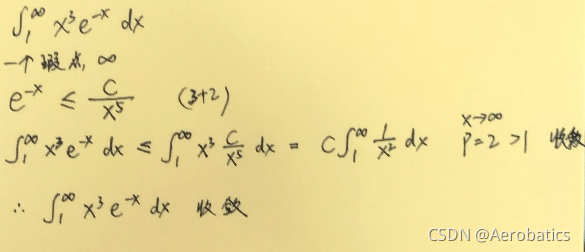 ∫₁^∞ x³ e⁻ˣ dx
一个瑕点, ∞
e⁻ˣ ≤ C/x⁵ (3+2)
∫₁^∞ x³ e⁻ˣ dx ≤ ∫₁^∞ x³ C/x⁵ dx = C∫₁^∞ 1/x² dx x→∞ P=2>1 收敛
∴ ∫₁^∞ x³ e⁻ˣ dx 收敛
CSDN @Aerobatics